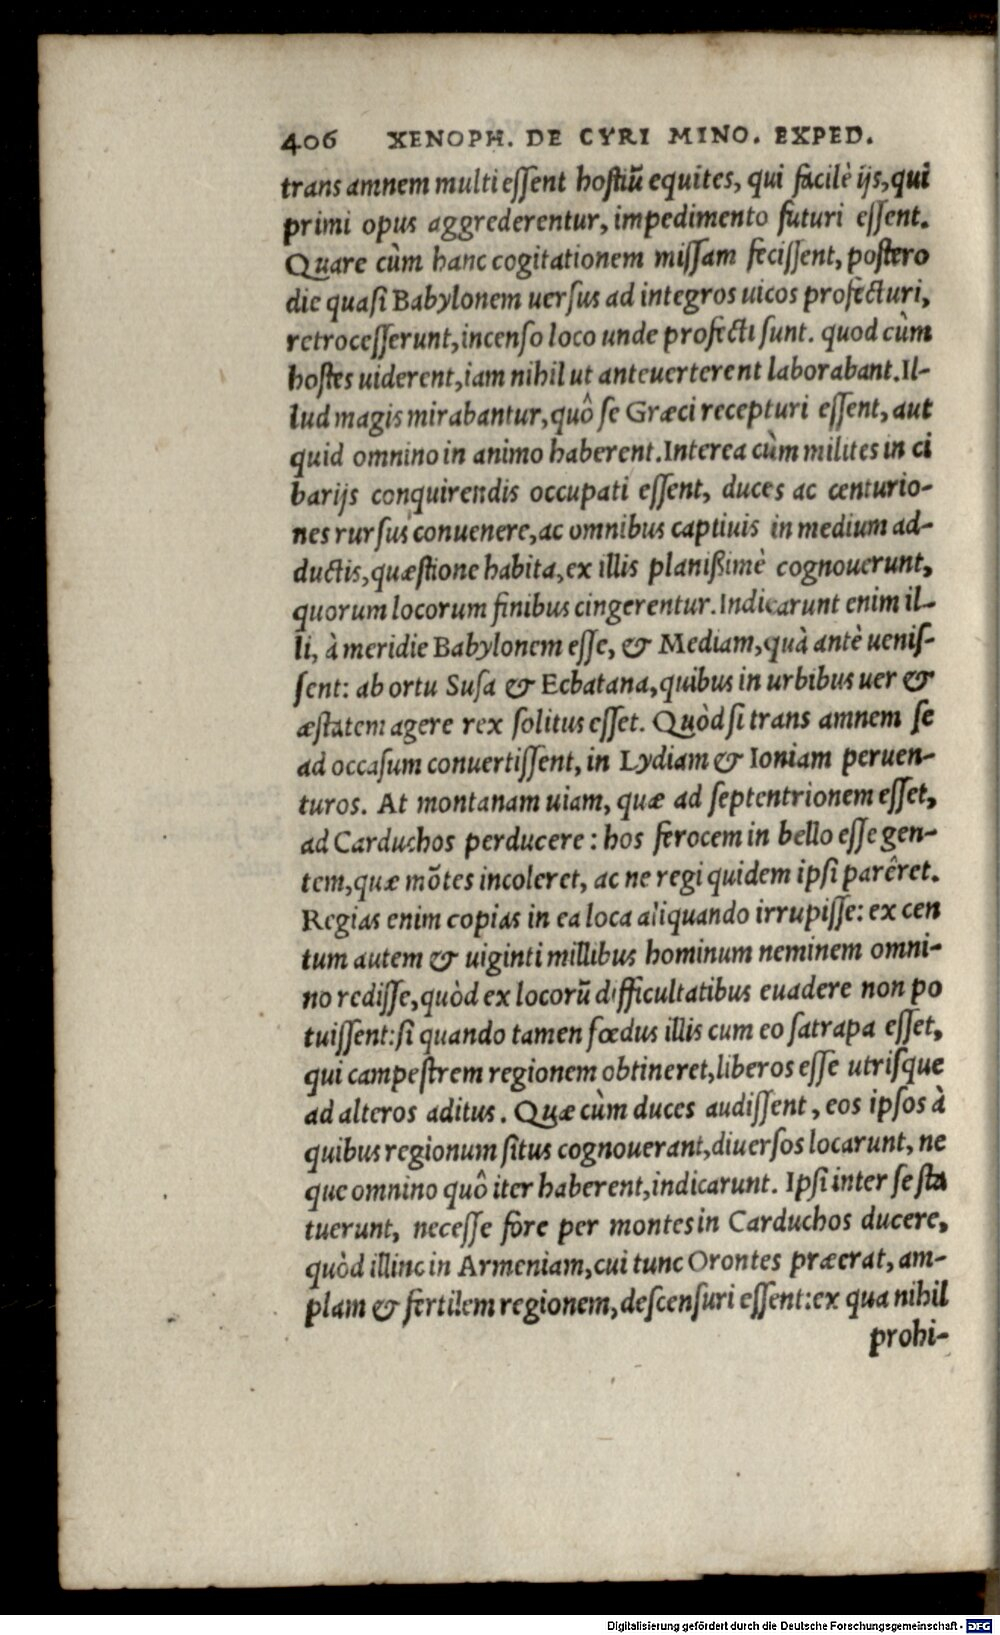 406 XENOPH. DE CYRI MINO. EXPED.
trans amnem multi essent hostiũ equites, qui facilè ijs, qui
primi opus aggrederentur, impedimento futuri essent.
Quare cùm hanc cogitationem missam fecissent, postero
die quasi Babylonem uersus ad integros uicos profecturi,
retrocesserunt, incenso loco unde profecti sunt. quod cùm
hostes uiderent, iam nihil ut anteuerterent laborabant. Il-
lud magis mirabantur, quô se Græci recepturi essent, aut
quid omnino in animo haberent. Interea cùm milites in ci
barijs conquirendis occupati essent, duces ac centurio-
nes rursus conuenere, ac omnibus captiuis in medium ad-
ductis, quæstione habita, ex illis planißimè cognouerunt,
quorum locorum finibus cingerentur. Indicarunt enim il-
li, à meridie Babylonem esse, & Mediam, quà antè uenis-
sent: ab ortu Susa & Ecbatana, quibus in urbibus uer &
æstatem agere rex solitus esset. Quòd si trans amnem se
ad occasum conuertissent, in Lydiam & Ioniam peruen-
turos. At montanam uiam, quæ ad septentrionem esset,
ad Carduchos perducere: hos ferocem in bello esse gen-
tem, quæ mõtes incoleret, ac ne regi quidem ipsi parêret.
Regias enim copias in ea loca aliquando irrupisse: ex cen
tum autem & uiginti millibus hominum neminem omni-
no redisse, quòd ex locorũ difficultatibus euadere non po
tuissent: si quando tamen fœdus illis cum eo satrapa esset,
qui campestrem regionem obtineret, liberos esse utrisque
ad alteros aditus. Quæ cùm duces audissent, eos ipsos à
quibus regionum situs cognouerant, diuersos locarunt, ne
que omnino quô iter haberent, indicarunt. Ipsi inter se sta
tuerunt, necesse fore per montes in Carduchos ducere,
quòd illinc in Armeniam, cui tunc Orontes præerat, am-
plam & fertilem regionem, descensuri essent: ex qua nihil
prohi-
Digitalisierung gefördert durch die Deutsche Forschungsgemeinschaft - DFG